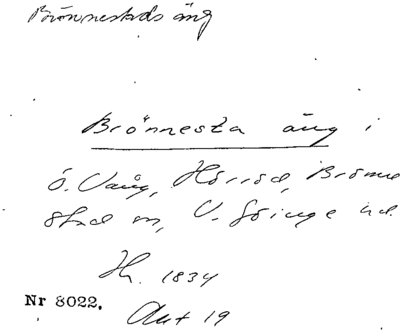 Brönnestads äng
Brönnesta äng i
Ö. Vång, Hörröd, Brönne
stad sn, V. Göinge hd.
Hh. 1834
Nr 8022. Akt 19